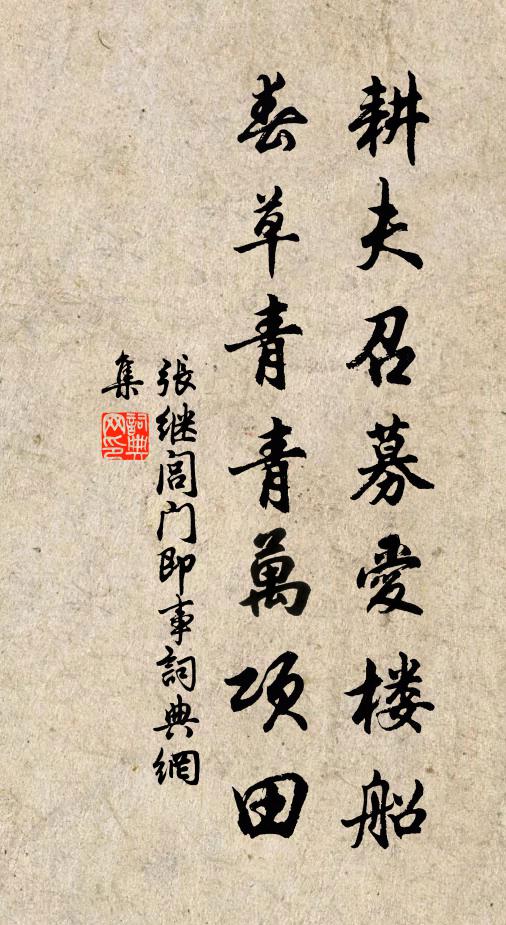 耕夫召募愛楼船
春草青青萬项田
張继阊门即事詞典網
集
詞典网印